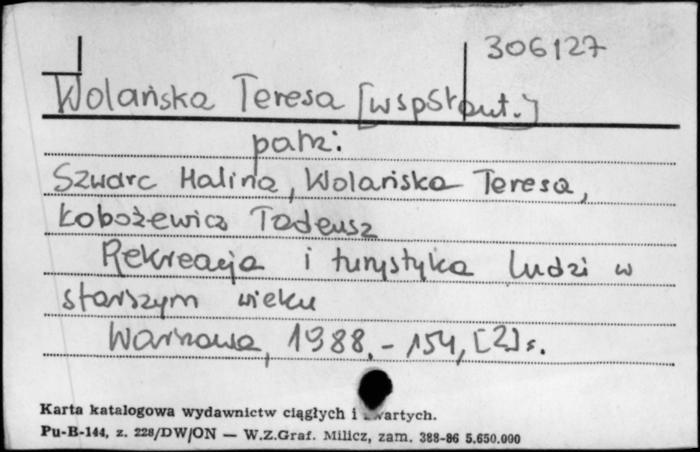 306127
Wolańska Teresa [współaut.]
patrz:
Szwarc Halina, Wolańska Teresa,
Łobożewicz Tadeusz
Rekreacja i turystyka ludzi w
starszym wieku
Warszawa, 1988. - 154, [2] s.
Karta katalogowa wydawnictw ciągłych i zwartych.
Pu-B-144, z. 228/DW/ON — W.Z.Graf. Milicz, zam. 388-86 5.650.000